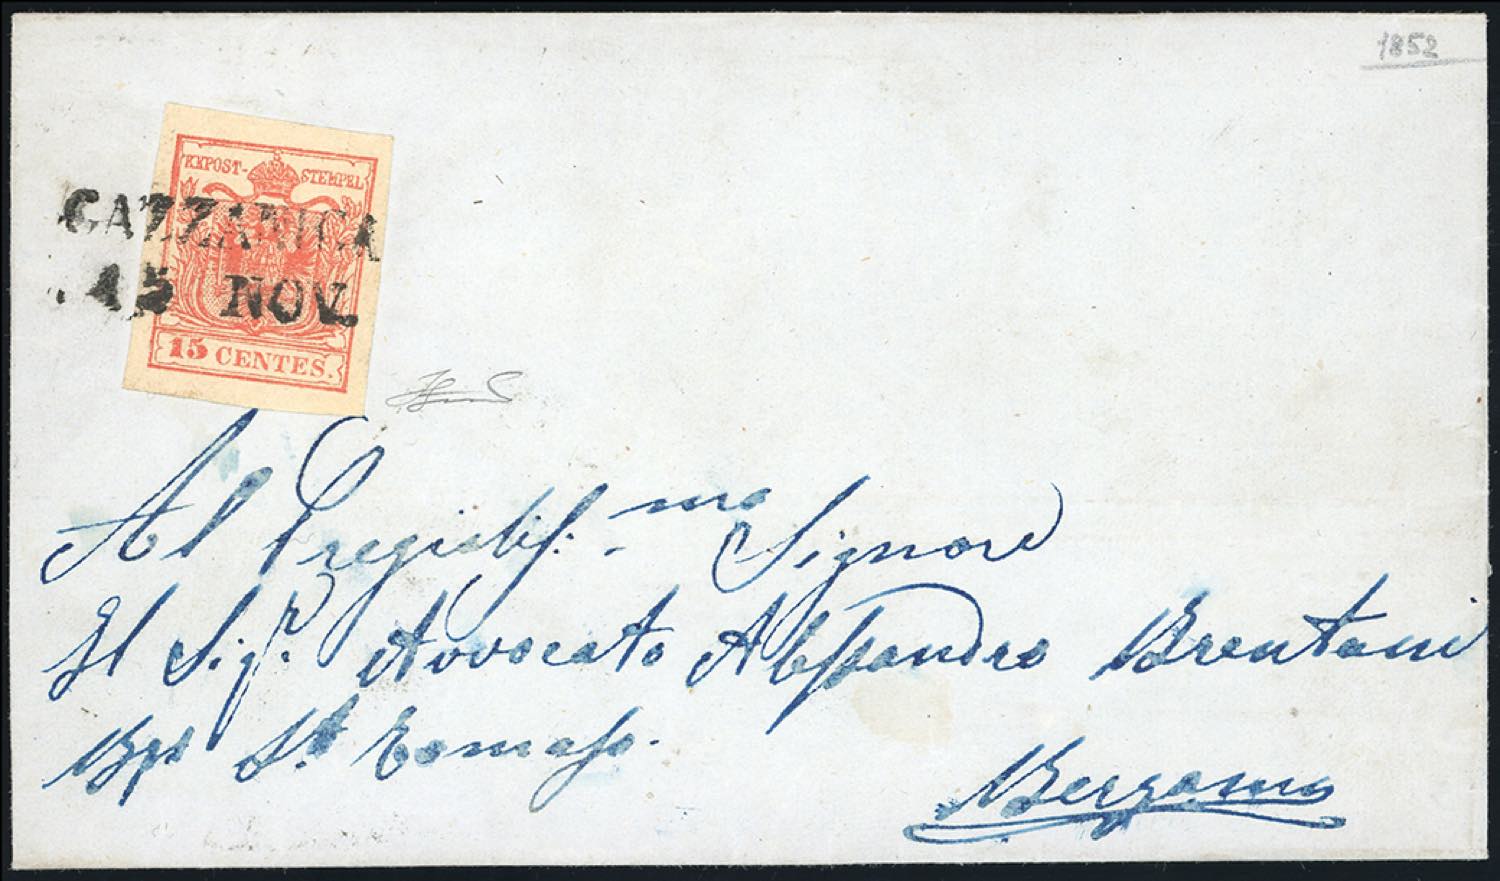 1852
KKPOST-STEMPEL
GAZZANIGA
15 NOV.
15 CENTES.
Al Pregiatiss: mo Signore
Il Sig.r Avvocato Alessandro Brentani
St Tomaso.
Bergamo